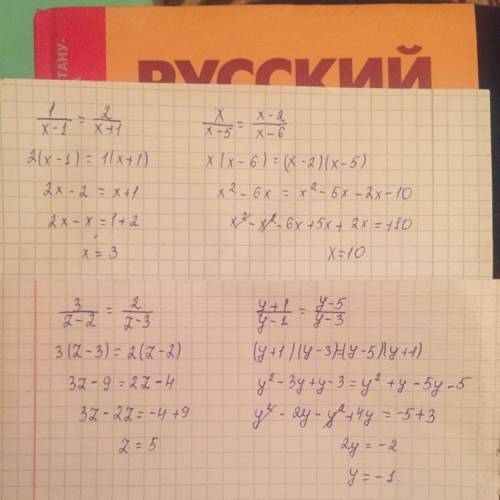 ТАНУ-
РУССКИЙ
1/(x-1) = 2/(x+1)
2(x-1) = 1(x+1)
2x-2 = x+1
2x-x = 1+2
x = 3
x/(x-5) = (x-2)/(x-6)
x(x-6) = (x-2)(x-5)
x²-6x = x²-5x-2x-10
x²-x²-6x+5x+2x = +10
x=10
3/(z-2) = 2/(z-3)
3(z-3) = 2(z-2)
3z-9 = 2z-4
3z-2z = -4+9
z = 5
(y+1)/(y-1) = (y-5)/(y-3)
(y+1)(y-3)=(y-5)(y+1)
y²-3y+y-3 = y²+y-5y-5
y²-2y-y²+4y = -5+3
2y = -2
y = -1